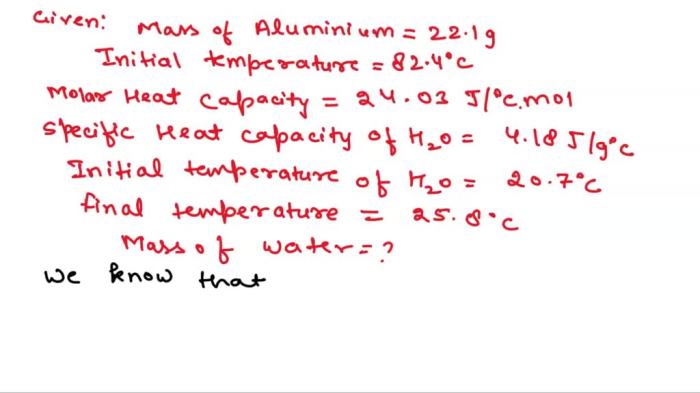 Given: Mass of Aluminium = 22.1g
Initial temperature = 82.4°C
Molar Heat capacity = 24.03 J/°C.mol
Specific Heat capacity of H₂O = 4.18 J/g°C
Initial temperature of H₂O = 20.7°C
final temperature = 25.8°C
Mass of water = ?
we know that